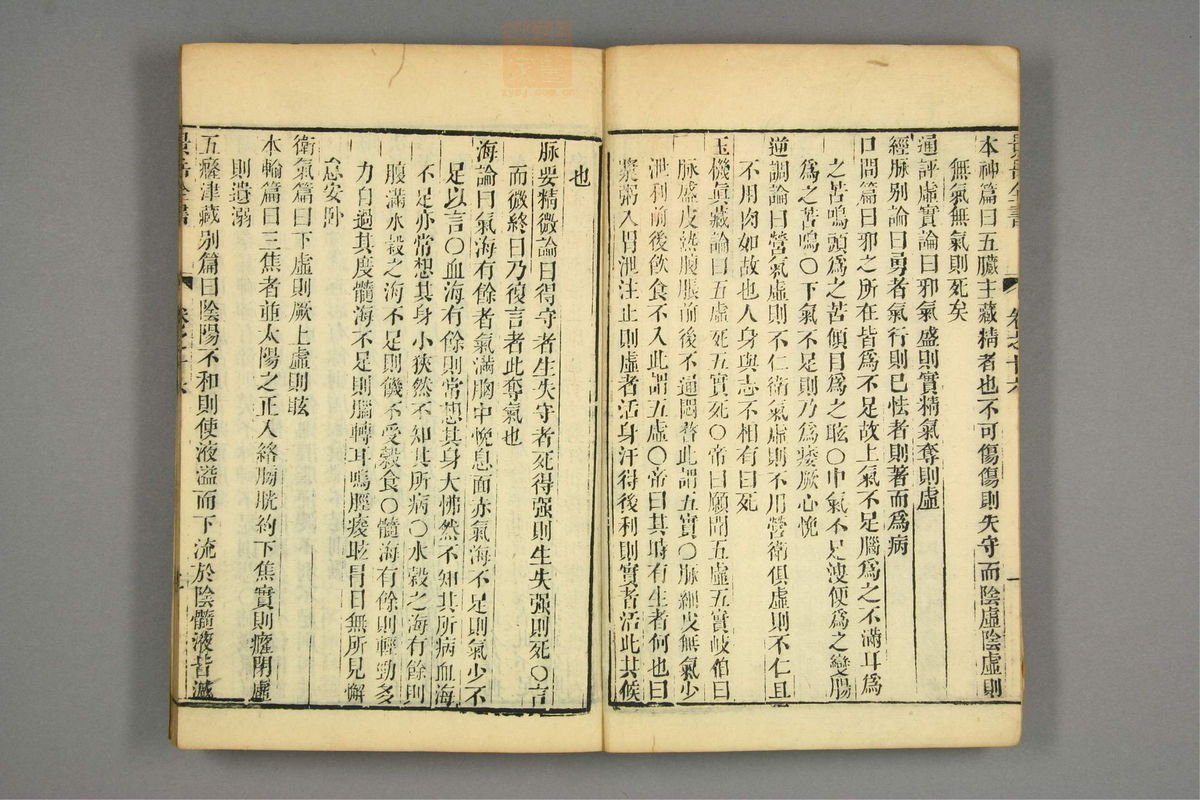 本神篇曰五臟主藏精者也不可傷傷則失守而陰虛陰虛則
無氣無氣則死矣
通評虛實論曰邪氣盛則實精氣奪則虛
經脉別論曰勇者氣行則已怯者則著而爲病
口問篇曰邪之所在皆爲不足故上氣不足腦爲之不滿耳爲
之苦鳴頭爲之苦傾目爲之眩〇中氣不足溲便爲之變腸
爲之苦鳴〇下氣不足則乃爲痿厥心悗
逆調論曰營氣虛則不仁衛氣虛則不用營衛俱虛則不仁且
不用肉如故也人身與志不相有曰死
玉機眞藏論曰五虛死五實死〇帝曰願聞五虛五實岐伯曰
脉盛皮熱腹脹前後不通悶瞀此謂五實〇脉細皮無氣少
泄利前後飲食不入此謂五虛〇帝曰其時有生者何也曰
漿粥入胃泄注止則虛者活身汗得後利則實者活此其候
也
脉要精微論曰得守者生失守者死得强則生失强則死〇言
而微終日乃復言者此奪氣也
海論曰氣海有餘者氣滿胸中悗息面赤氣海不足則氣少不
足以言〇血海有餘則常想其身大怫然不知其所病血海
不足亦常想其身小狹然不知其所病〇水穀之海有餘則
腹滿水穀之海不足則饑不受穀食〇髓海有餘則輕勁多
力自過其度髓海不足則腦轉耳鳴脛痠眩冒目無所見懈
怠安卧
衛氣篇曰下虛則厥上虛則眩
本輸篇曰三焦者並太陽之正入絡膀胱約下焦實則癃閉虛
則遺溺
五癃津藏别篇曰陰陽不和則使液溢而下流於陰髓液皆減
景岳全書